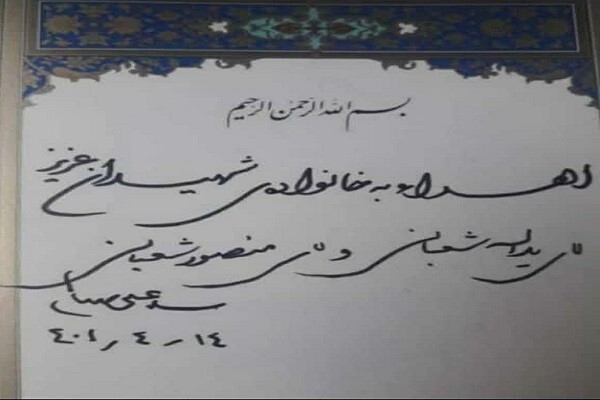 بسم الله الرحمن الرحیم
اهداء به خانواده‌ی شهیدان عزیز
آقای یدالله شعبانی و آقای منصور شعبانی
سید علی
۱۴ ر ۴ ر ۴۰۱